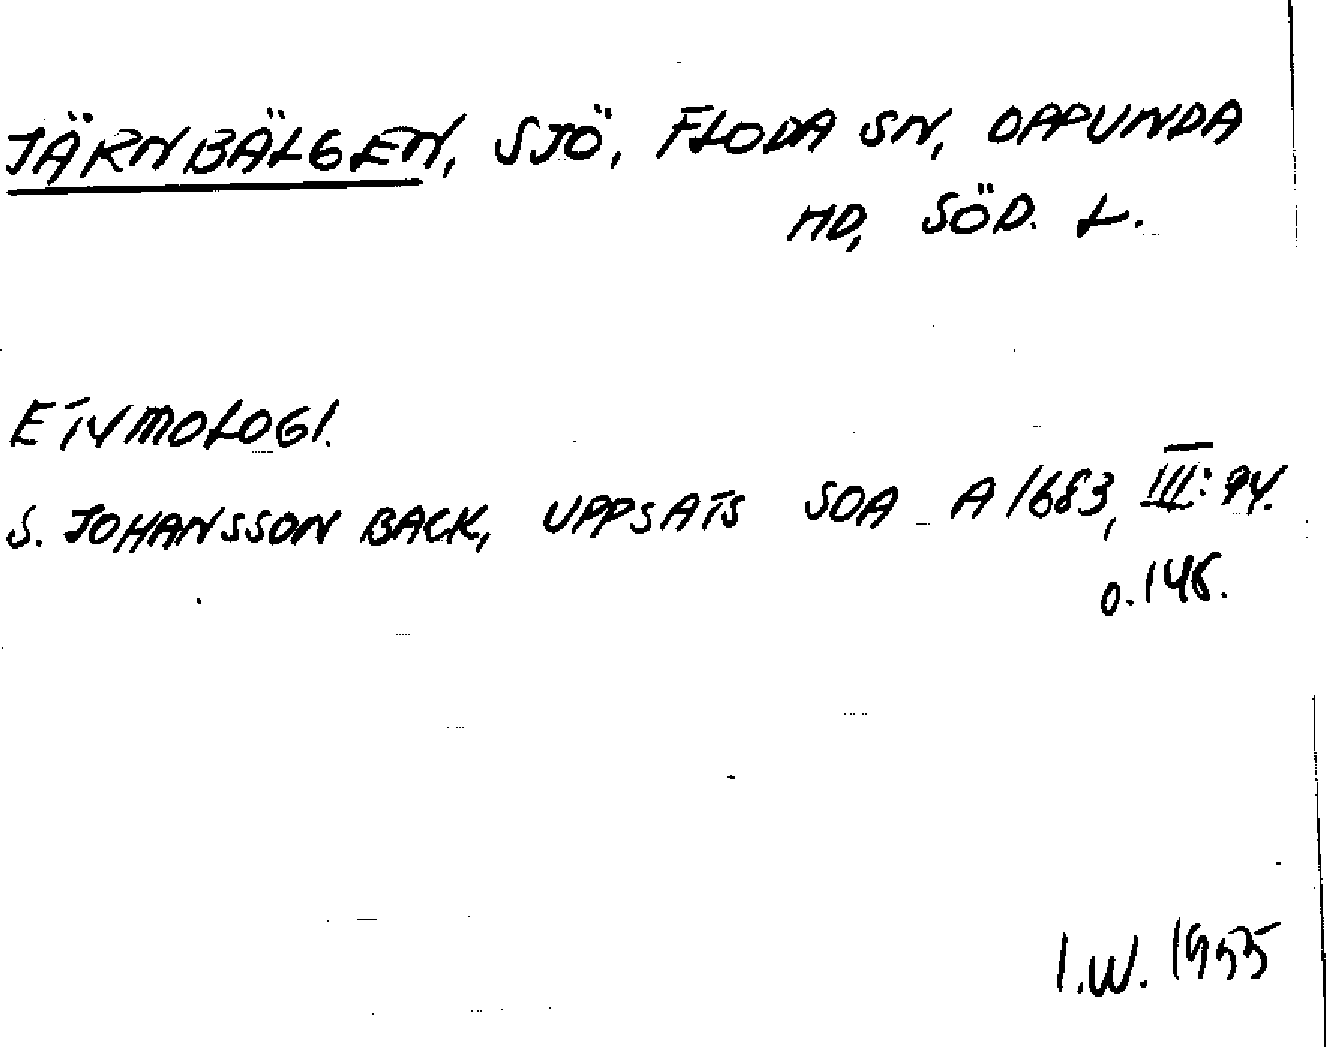 JÄRNBÄLGEN, SJÖ, FLODA SN, OPPUNDA
HD, SÖD. L.
ETYMOLOGI.
S. JOHANSSON BACK, UPPSATS SOA A1683, III: 94.
o. 148.
I.W. 1955